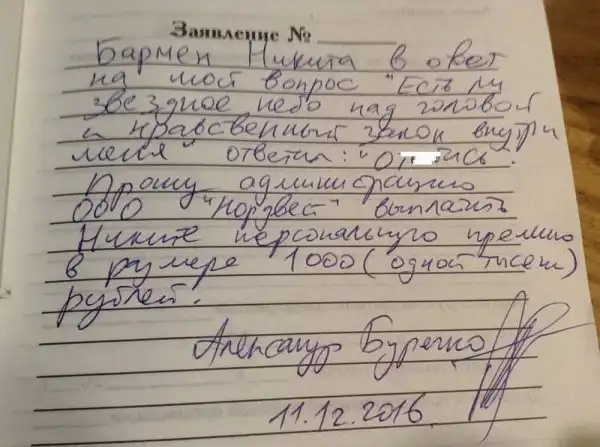 Заявление №
Бармен Никита в ответ
на мой вопрос "Есть ли
звездное небо над головой
и нравственный закон внутри
меня" ответил: "От сь".
Прошу администрацию
ООО "Нордвест" выплатить
Никите персональную премию
в размере 1000 (одной тысечи)
рублей.
Александр
11.12.2016